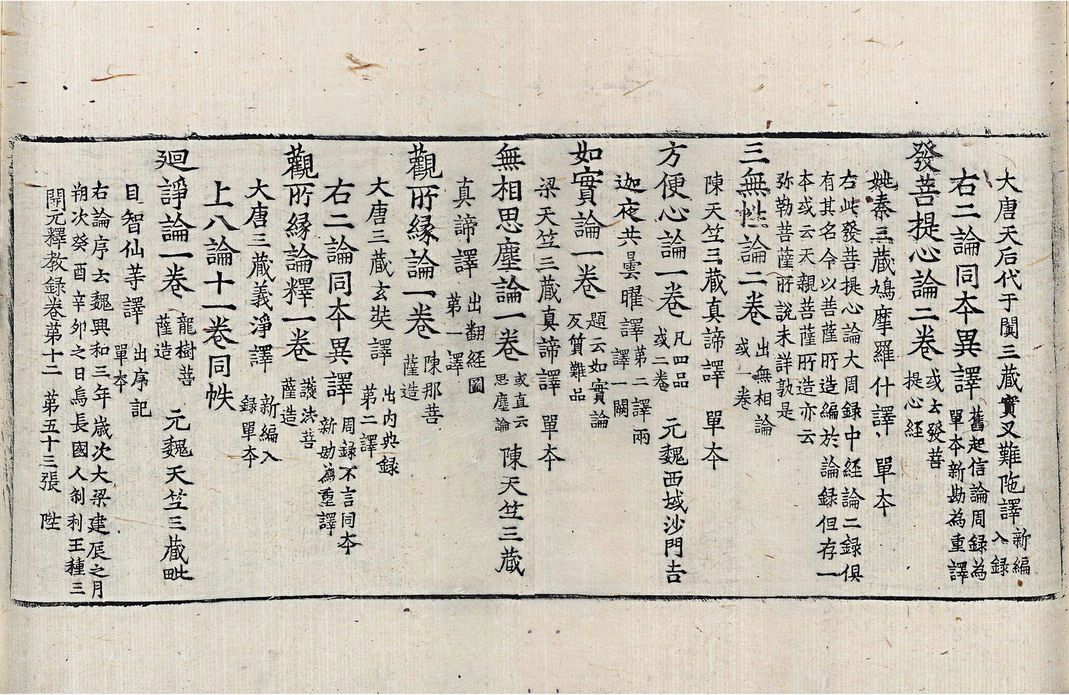 大唐天后代于闐三藏實叉難陁譯 新編入錄
右二論同夲異譯 舊起信論周録為單夲新勘為重譯
發菩提心論二卷 或云發菩提心經
姚秦三藏鳩摩羅什譯 單夲
右此發菩提心論大周録中経論二録俱
有其名今以菩薩所造編於論録但存一
夲或云天親菩薩所造亦云
弥勒菩薩所說未詳孰是
三無性論二卷 出無相論或一卷
陳天竺三藏真諦譯 單夲
方便心論一卷 凡四品或二卷 元魏西域沙門吉
迦夜共曇曜譯 第二譯兩譯一闕
如實論一卷 題云如實論反質難品
梁天竺三藏真諦譯 單夲
無相思塵論一卷 或直云思塵論 陳天竺三藏
真諦譯 出翻経圖第一譯
觀所緣論一卷 陳那菩薩造
大唐三藏玄奘譯 出內典録第二譯
右二論同夲異譯 周録不言同夲新勘為重譯
觀所緣論釋一卷 護法菩薩造
大唐三藏義淨譯 新編入録單夲
上八論十一卷同帙
廻諍論一卷 龍樹菩薩造 元魏天竺三藏毗
目智仙等譯 出序記單夲
右論序云魏興和三年歲次大梁建辰之月
朔次癸酉辛夘之日烏長國人剎利王種三
開元釋教録卷第十二 第五十三張 陞